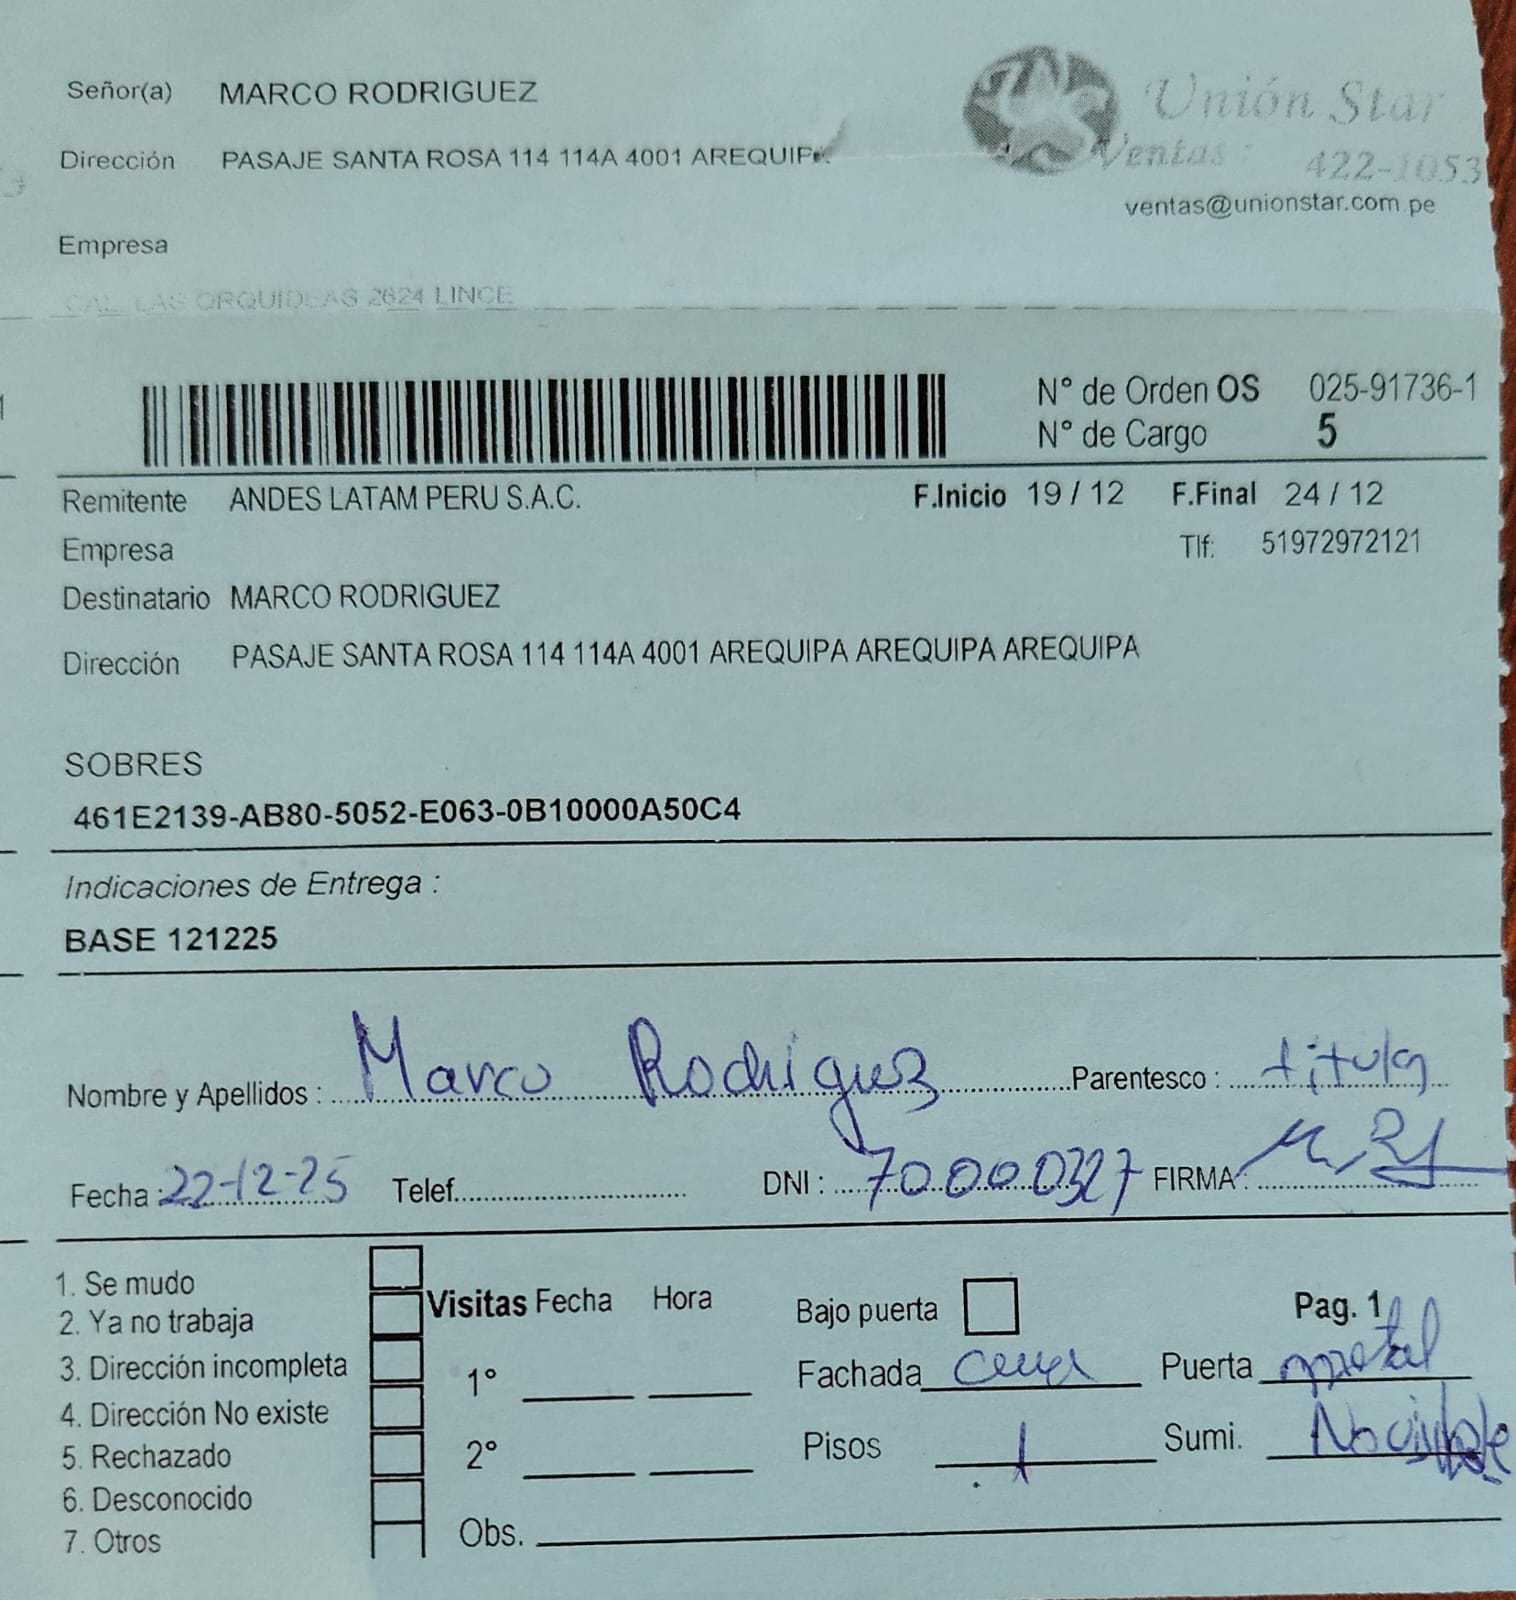 Señor(a) MARCO RODRIGUEZ
Unión Star
Dirección PASAJE SANTA ROSA 114 114A 4001 AREQUIPA
Ventas : 422-1053
ventas@unionstar.com.pe
Empresa
CAL. LAS ORQUIDEAS 2624 LINCE
N° de Orden OS 025-91736-1
N° de Cargo 5
Remitente ANDES LATAM PERU S.A.C. F.Inicio 19 / 12 F.Final 24 / 12
Empresa Tlf: 51972972121
Destinatario MARCO RODRIGUEZ
Dirección PASAJE SANTA ROSA 114 114A 4001 AREQUIPA AREQUIPA AREQUIPA
SOBRES
461E2139-AB80-5052-E063-0B10000A50C4
Indicaciones de Entrega :
BASE 121225
Nombre y Apellidos : Marco Rodriguez Parentesco : titular
Fecha : 22-12-25 Telef. DNI : 70000327 FIRMA :
1. Se mudo
2. Ya no trabaja
3. Dirección incompleta
4. Dirección No existe
5. Rechazado
6. Desconocido
7. Otros
Visitas Fecha Hora
1°
2°
Obs.
Bajo puerta Pag. 1
Fachada Puerta metal
Pisos 1 Sumi. No visible